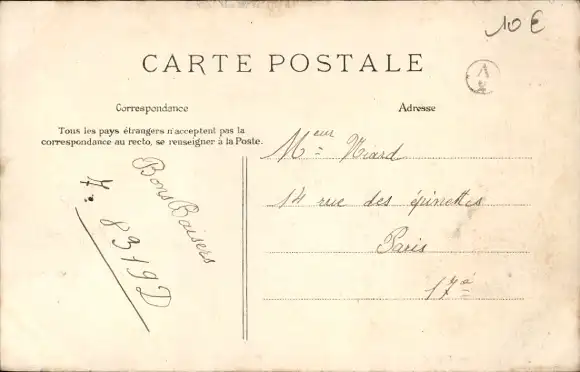 10 €
CARTE POSTALE
Correspondance
Adresse
Tous les pays étrangers n'acceptent pas la
correspondance au recto, se renseigner à la Poste.
Bons Baisers
7. 8319D
Meur Miard
14 rue des épinettes
Paris
17è